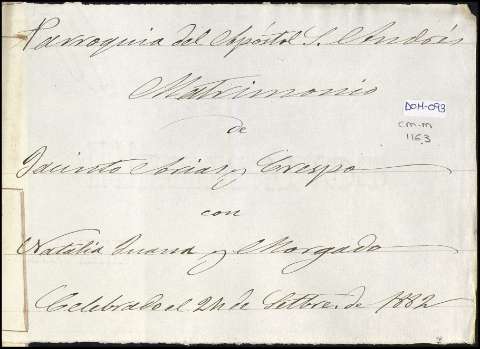 Parroquia del Apóstol S. Andrés
Matrimonio
DOH-093
de
C M-M
1163
Jacinto Arias y Crespo
con
Natalia Juana y Morgado
Celebrado el 24 de Setbre. de 1882